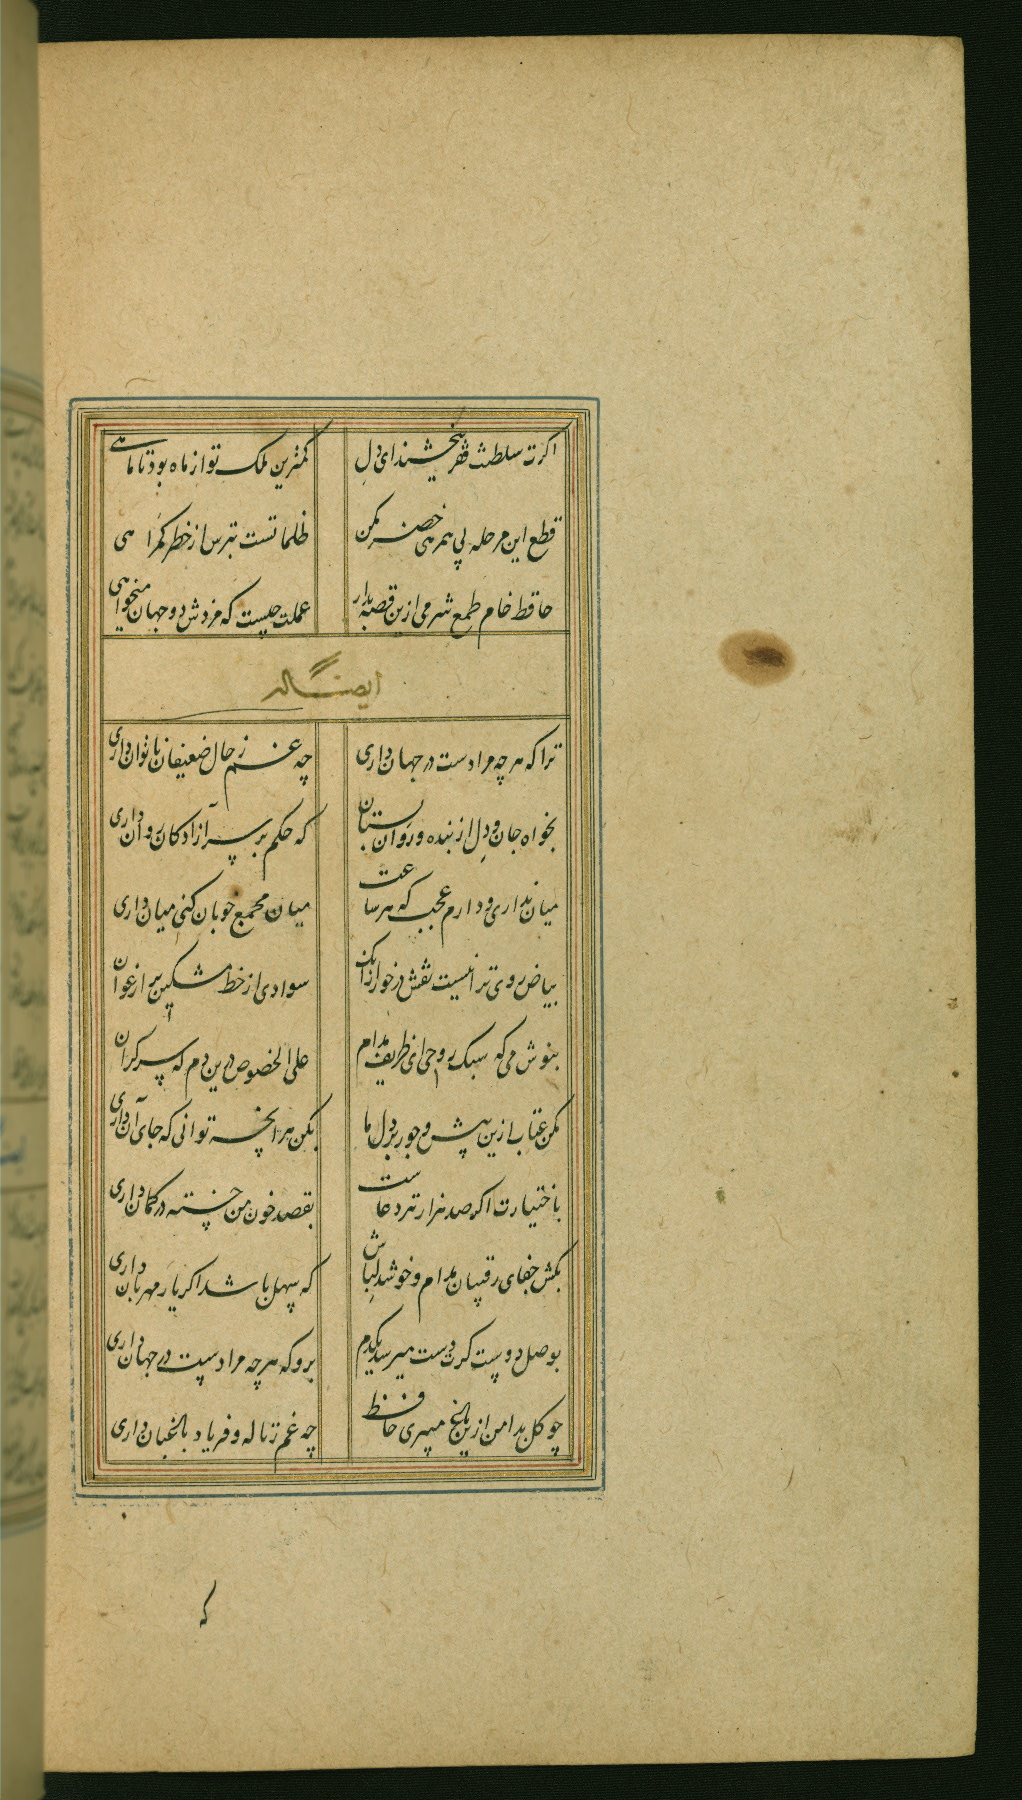 اگرت سلطنت فقر ببخشند ای دل
کمترین ملک تو از ماه بود تا ماهی
قطع این مرحله بی همرهی خضر مکن
ظلماتست بترس از خطر گمراهی
حافظ خام طمع شرمی ازین قصه بدار
عملت چیست که مزدش دو جهان میخواهی
ایضاله
ترا که هر چه مرادست در جهان داری
چه غم ز حال ضعیفان ناتوان داری
بخواه جان و دل از بنده و روان بستان
که حکم بر سر آزادگان روان داری
میان نداری و دارم عجب که هر ساعت
میان مجمع خوبان کنی میان داری
بیاض روی ترا نیست نقش در خور از آنک
سوادی از خط مشکین بر ارغوان
بنوش می که سبک روحی ای ظریف مدام
علی الخصوص درین دم که سر گران
مکن عتاب ازین بیش و جور بر دل ما
بکن هر آنچه توانی که جای آن داری
باختیارت اگر صد هزار تیر جفاست
بقصد خون من خسته در کمان داری
بکش جفای رقیبان مدام و خوشدل باش
که سهل باشد اگر یار مهربان داری
بوصل دوست گرت دست میرسد یکدم
برو که هر چه مرادست در جهان داری
چو گل بدامن ازین باغ میبری حافظ
چه غم ز ناله و فریاد باغبان داری
که